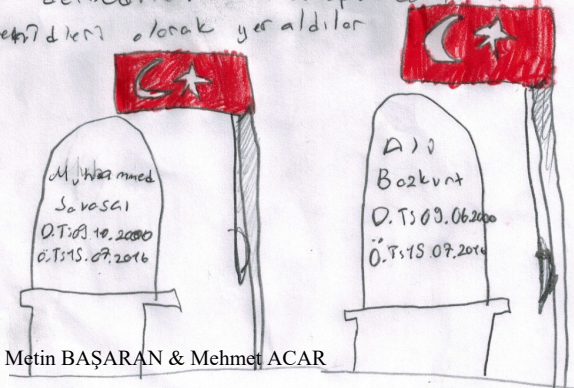 olarak yer aldılar
Muhammed
Savaşal
D.T:09.10.2000
Ö.T:15.07.2016
Ali
Bozkurt
D.T:09.06.2000
Ö.T:15.07.2016
Metin BAŞARAN & Mehmet ACAR